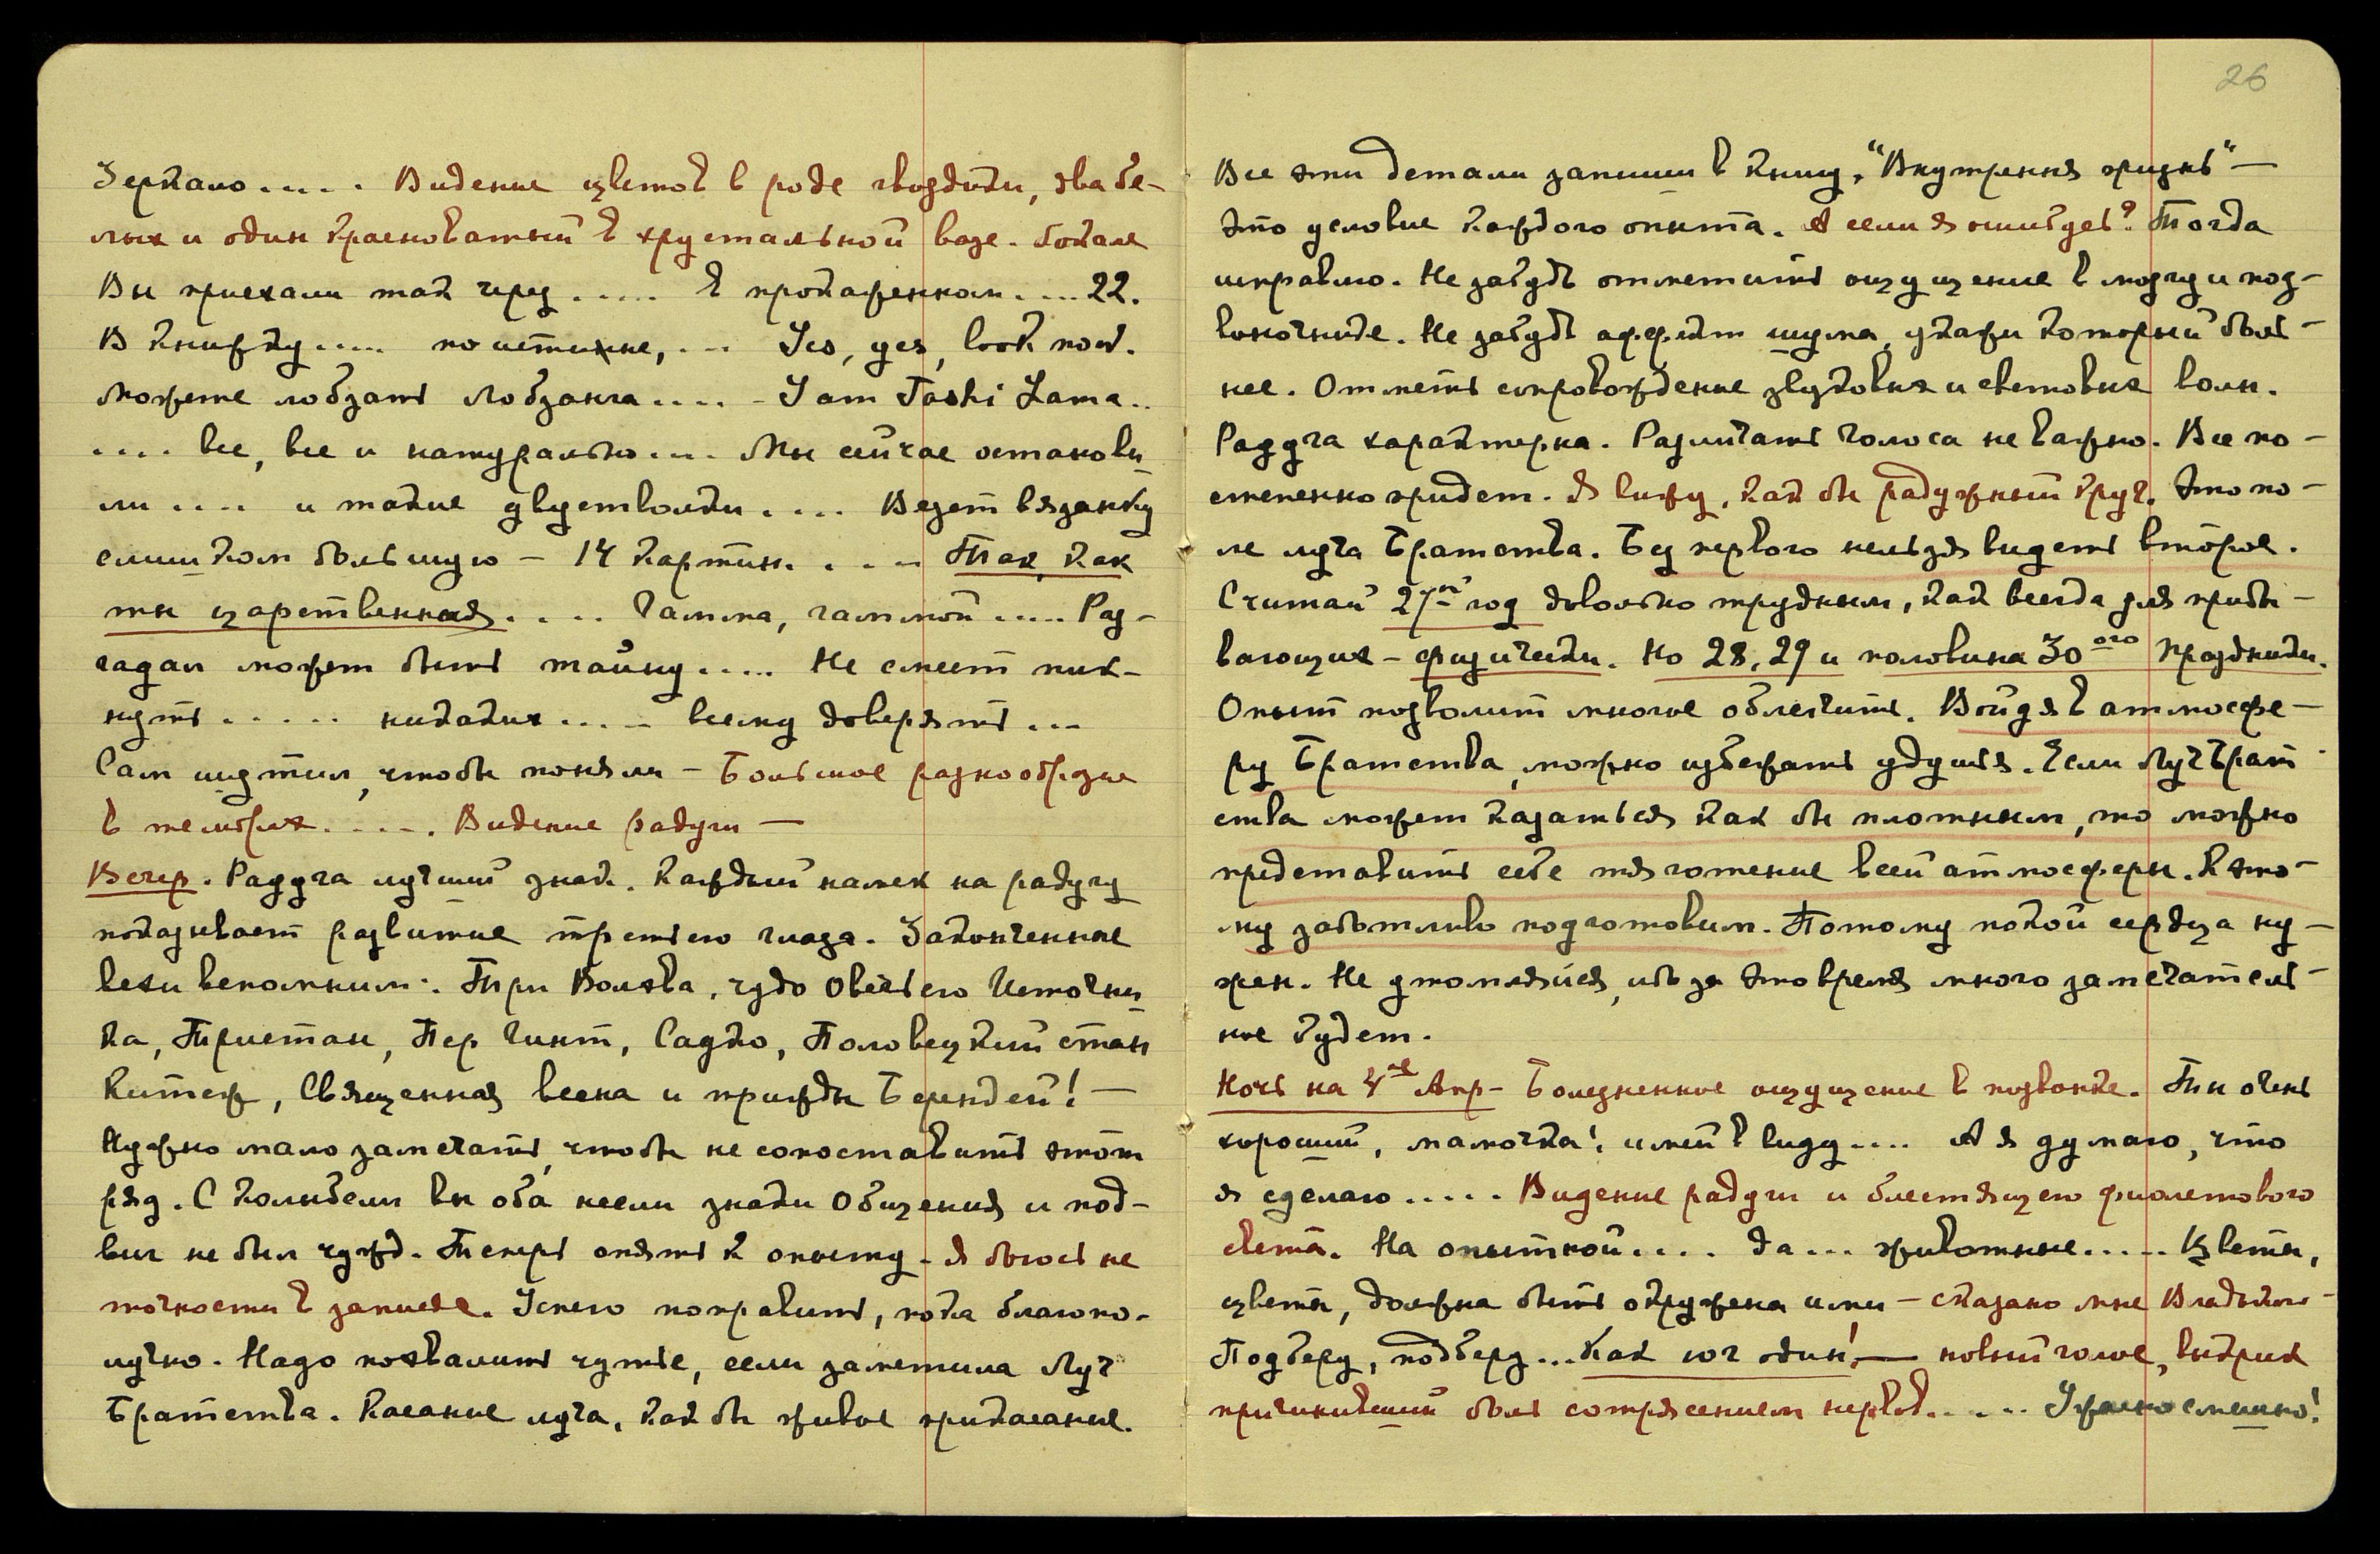 Зеркало..... Видение цветов в роде гвоздики, два бе-
лых и один красноватый в хрустальной вазе-бокале
Вы приехали так через ..... в прокаженном....22.
В книжку..... по истине,... Yes, yes, look now.
Можете лобзать Лобзанга.... - I am Tashi Lama..
.... все, все и натурально.... Мы сейчас останови
ли .... и такие двустволки .... Везет вязанку
слишком большую - 14 картин. . . . Так, как
ты царственная. . . . Гамма, гаммой .... Раз-
гадал может быть тайну..... Не смеет пик-
нуть ..... никаких .... всему доверять ...
Сам шутил, чтобы поняли - Большое разнообразие
в тембрах ..... Видение радуги —
Вечер. Радуга лучший знак. Каждый намек на радугу
показывает развитие третьего глаза. Законченные
вехи вспомним: Три Волхва, чудо Овечьего Источни
ка, Тристан, Пер Гинт, Садко, Половецкий стан
Китеж, Священная весна и трижды Берендей! —
Нужно мало замечать, чтобы не сопоставить этот
ряд. С колыбели вы оба несли знаки Общения и под-
виг не был чужд. Теперь опять к опыту - Я боюсь не
точности в записях. Успею поправить, пока благопо-
лучно. Надо похвалить чутье, если заметила Луч
Братства. Касание луча, как бы живое прикасание.
26
Все эти детали запиши в книгу, "Внутренняя жизнь" —
это условие каждого опыта. А если я ошибусь? Тогда
исправлю. Не забудь отметить ощущение в мозгу и поз-
воночнике. Не забудь аффект шума, укажи который боль-
нее. Отметь сопровождение звуковых и световых волн.
Радуга характерна. Различать голоса не важно. Все по-
степенно придет. Я вижу, как бы радужный круг. Это по-
ле луча Братства. Без первого нельзя видеть второе.
Считай 27й год довольно трудным, как всегда для прибы-
вающих - физически. Но 28, 29 и половина 30ого праздники.
Опыт позволит многое облегчить. Войдя в атмосфе-
ру Братства, можно избежать удушья. Если Луч Брат
ства может казаться как бы плотным, то можно
представить себе тяготение всей атмосферы. К это-
му заботливо подготовим. Потому покой сердца ну-
жен. Не утомляйся, ибо за это время много замечатель-
ное будет.
Ночь на 4ое Апр - Болезненное ощущение в позвонке. Ты очень
хороший, мамочка! имей в виду.... А я думаю, что
я сделаю ..... Видение радуги и блестящего фиолетового
света. На опытной.... Да... животные..... Цветы,
цветы, должна быть окружена ими - сказано мне Владыкою -
Подберу, подберу...Как юг один! — новый голос, выкрик
причинивший боль сотрясением нервов..... Ужасно смешно!